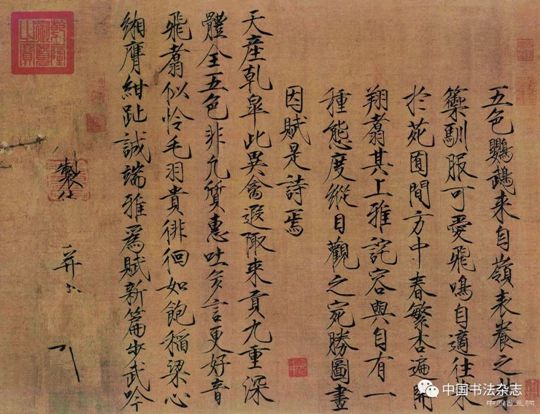 五色鸚鵡來自嶺表養之
籞馴服可愛飛鳴自適往
於苑囿間方中春繁杏遍開
翔翥其上雅詫容與自有一
種態度縱目觀之宛勝圖畫
因賦是詩焉
天產乾皋此異禽遐陬來貢九重深
體全五色非凡質惠吐多言更好音
飛翥似憐毛羽貴徘徊如飽稻粱心
緗膺紺趾誠端雅為賦新篇步武吟
製
并
中国书法杂志